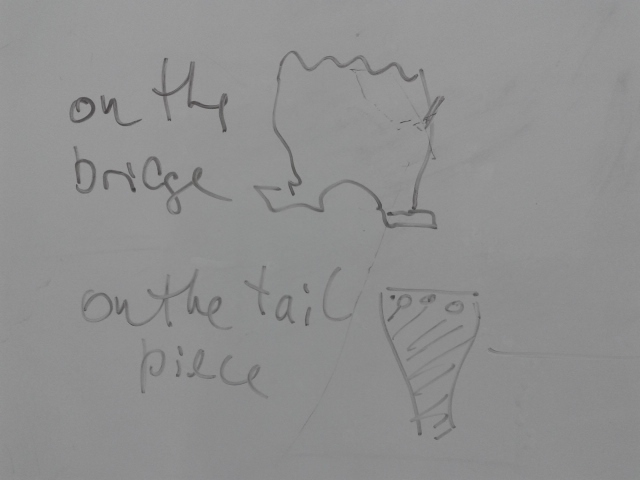 on the
bridge
on the tail
piece